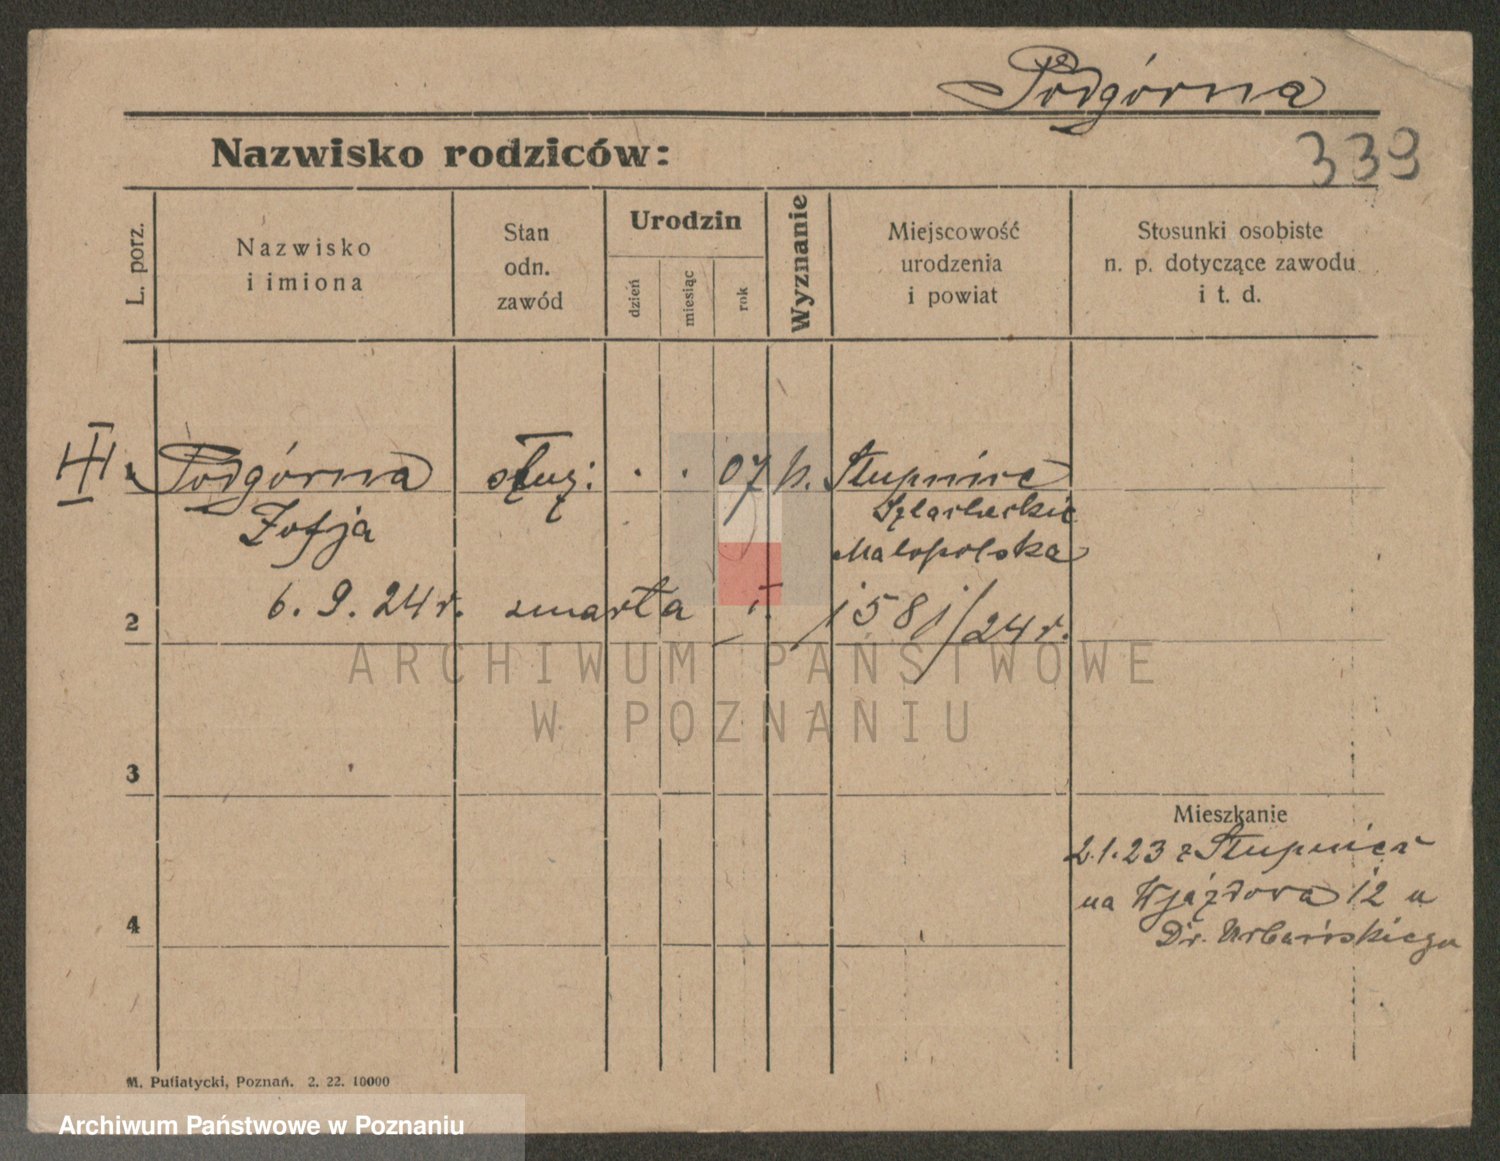 Podgórna
339
Nazwisko rodziców:
L. porz.
Nazwisko
i imiona
Stan
odn.
zawód
Urodzin
dzień
miesiąc
rok
Wyznanie
Miejscowość
urodzenia
i powiat
Stosunki osobiste
n. p. dotyczące zawodu
i t. d.
III 1 Podgórna służ: . . 07 k. Stupnice
Zofja Szlacheckie
Małopolska
2 6. 9. 24 r. zmarła 1581/24 r.
ARCHIWUM PAŃSTWOWE
W POZNANIU
3
Mieszkanie
2.1.23 z Stupnica
na Wjazdowa 12 u
4 Dr. Urbańskiego
M. Putiatycki, Poznań. 2. 22. 10000
Archiwum Państwowe w Poznaniu